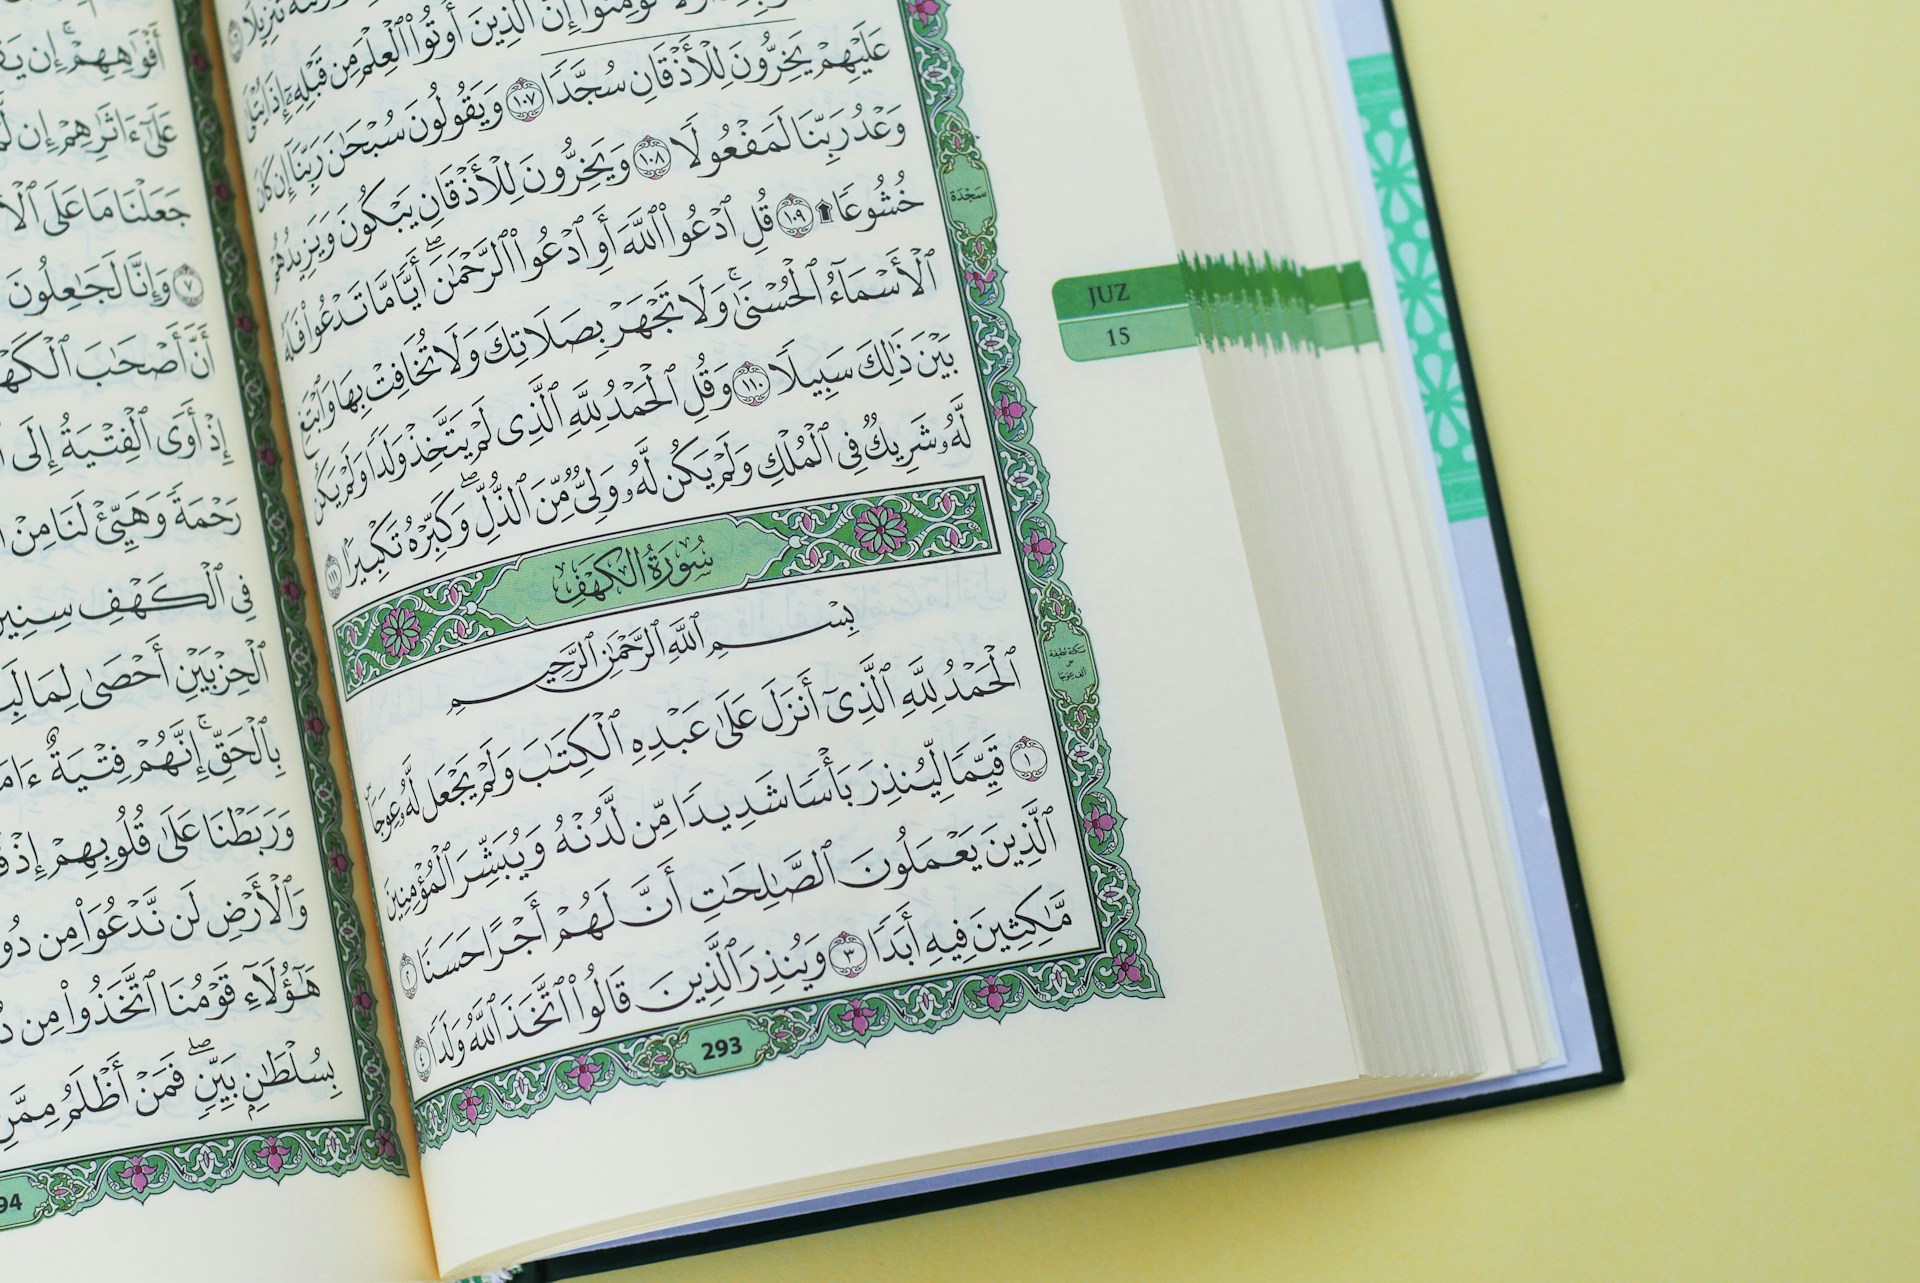 تَنزِيلًا ١٠٦
لَا تُؤْمِنُوٓا۟ إِنَّ ٱلَّذِينَ أُوتُوا۟ ٱلْعِلْمَ مِن قَبْلِهِۦٓ إِذَا يُتْلَىٰ
عَلَيْهِمْ يَخِرُّونَ لِلْأَذْقَانِ سُجَّدًا ١٠٧ وَيَقُولُونَ سُبْحَٰنَ رَبِّنَآ إِن كَانَ
وَعْدُ رَبِّنَا لَمَفْعُولًا ١٠٨ وَيَخِرُّونَ لِلْأَذْقَانِ يَبْكُونَ وَيَزِيدُهُمْ
خُشُوعًا ۩ ١٠٩ قُلِ ٱدْعُوا۟ ٱللَّهَ أَوِ ٱدْعُوا۟ ٱلرَّحْمَٰنَ ۖ أَيًّا مَّا تَدْعُوا۟ فَلَهُ
ٱلْأَسْمَآءُ ٱلْحُسْنَىٰ ۚ وَلَا تَجْهَرْ بِصَلَاتِكَ وَلَا تُخَافِتْ بِهَا وَٱبْتَغِ
بَيْنَ ذَٰلِكَ سَبِيلًا ١١٠ وَقُلِ ٱلْحَمْدُ لِلَّهِ ٱلَّذِى لَمْ يَتَّخِذْ وَلَدًا وَلَمْ يَكُن
لَّهُۥ شَرِيكٌ فِى ٱلْمُلْكِ وَلَمْ يَكُن لَّهُۥ وَلِىٌّ مِّنَ ٱلذُّلِّ ۖ وَكَبِّرْهُ تَكْبِيرًۢا ١١١
سُورَةُ الكَهْفِ
بِسْمِ ٱللَّهِ ٱلرَّحْمَٰنِ ٱلرَّحِيمِ
ٱلْحَمْدُ لِلَّهِ ٱلَّذِىٓ أَنزَلَ عَلَىٰ عَبْدِهِ ٱلْكِتَٰبَ وَلَمْ يَجْعَل لَّهُۥ عِوَجَاۜ
١ قَيِّمًا لِّيُنذِرَ بَأْسًا شَدِيدًا مِّن لَّدُنْهُ وَيُبَشِّرَ ٱلْمُؤْمِنِينَ
ٱلَّذِينَ يَعْمَلُونَ ٱلصَّٰلِحَٰتِ أَنَّ لَهُمْ أَجْرًا حَسَنًا ٢
مَّٰكِثِينَ فِيهِ أَبَدًا ٣ وَيُنذِرَ ٱلَّذِينَ قَالُوا۟ ٱتَّخَذَ ٱللَّهُ وَلَدًا ٤
293
سَجْدَة
سكتة لطيفة
JUZ
15
أَفْوَٰهِهِمْ ۚ إِن
عَلَىٰٓ ءَاثَٰرِهِمْ إِن
جَعَلْنَا مَا عَلَى
٧ وَإِنَّا لَجَٰعِلُونَ
أَنَّ أَصْحَٰبَ ٱلْكَهْ
إِذْ أَوَى ٱلْفِتْيَةُ إِلَى
رَحْمَةً وَهَيِّئْ لَنَا مِنْ
فِى ٱلْكَهْفِ سِنِينَ
ٱلْحِزْبَيْنِ أَحْصَىٰ لِمَا
بِٱلْحَقِّ ۚ إِنَّهُمْ فِتْيَةٌ
وَرَبَطْنَا عَلَىٰ قُلُوبِهِمْ إِذْ
وَٱلْأَرْضِ لَن نَّدْعُوَا۟ مِن
هَٰٓؤُلَآءِ قَوْمُنَا ٱتَّخَذُوا۟ مِن
بِسُلْطَٰنٍۭ بَيِّنٍ ۖ فَمَنْ أَظْلَمُ مِمَّنِ
94